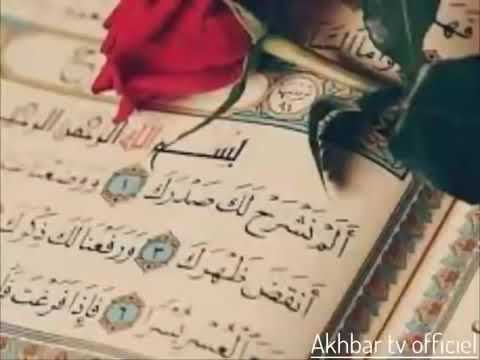 بِسْمِ اللَّهِ الرَّحْمَٰنِ
أَلَمْ نَشْرَحْ لَكَ صَدْرَكَ ١ وَوَضَعْنَا
أَنقَضَ ظَهْرَكَ ٣ وَرَفَعْنَا لَكَ ذِكْرَكَ
الْعُسْرِ يُسْرًا ٦ فَإِذَا فَرَغْتَ
Akhbar tv officiel